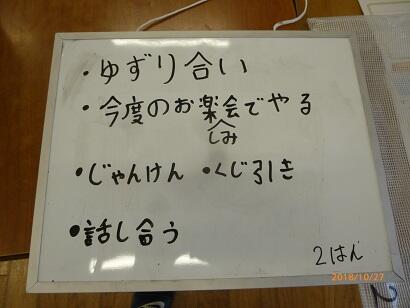 ・ゆずり合い
・今度のお楽会でやる
しみ
・じゃんけん ・くじ引き
・話し合う
2はん
2018/10/27